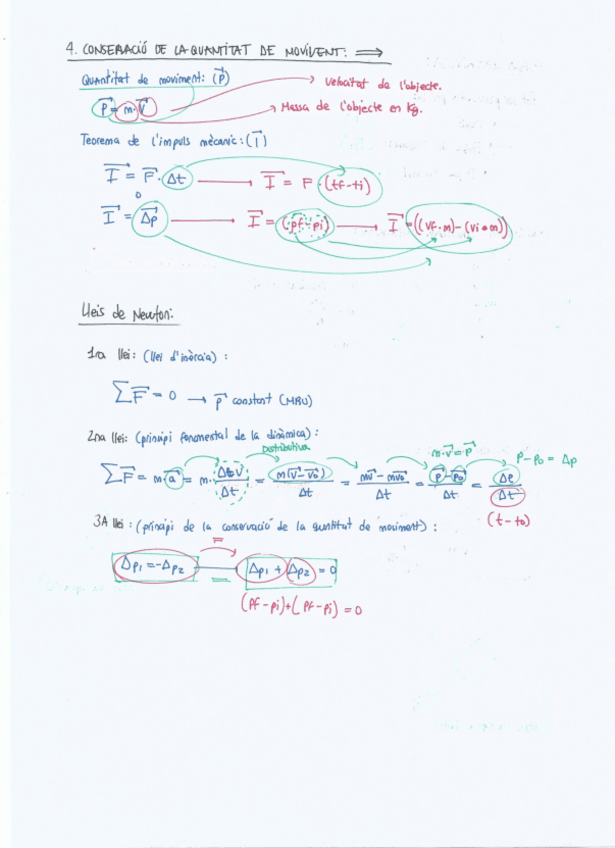 4. CONSERVACIÓ DE LA QUANTITAT DE MOVIMENT: ⟹
Quantitat de moviment: (p⃗)
→ Velocitat de l'objecte.
p⃗ = m·v⃗
→ Massa de l'objecte en kg.
Teorema de l'impuls mecànic: (I⃗)
I⃗ = F⃗ · Δt → I⃗ = F · (tf-ti)
o
I⃗ = Δp⃗ → I⃗ = (pf-pi) → I⃗ = ((vf·m)-(vi·m))
Lleis de Newton:
1ra llei: (llei d'inèrcia):
∑F⃗ = 0 → p⃗ constant (MRU)
2na llei: (principi fonamental de la dinàmica):
Distributiva
m·v⃗=p⃗
p-p0 = Δp
∑F⃗ = m·a⃗ = m· Δv/Δt = m(v⃗-v⃗0)/Δt = mv⃗ - mv⃗0/Δt = p⃗-p⃗0/Δt = Δp/Δt
(t-t0)
3A llei: (principi de la conservació de la quntitat de moviment):
=
Δp1 = -Δp2 — Δp1 + Δp2 = 0
=
(pf-pi)+(pf-pi) = 0